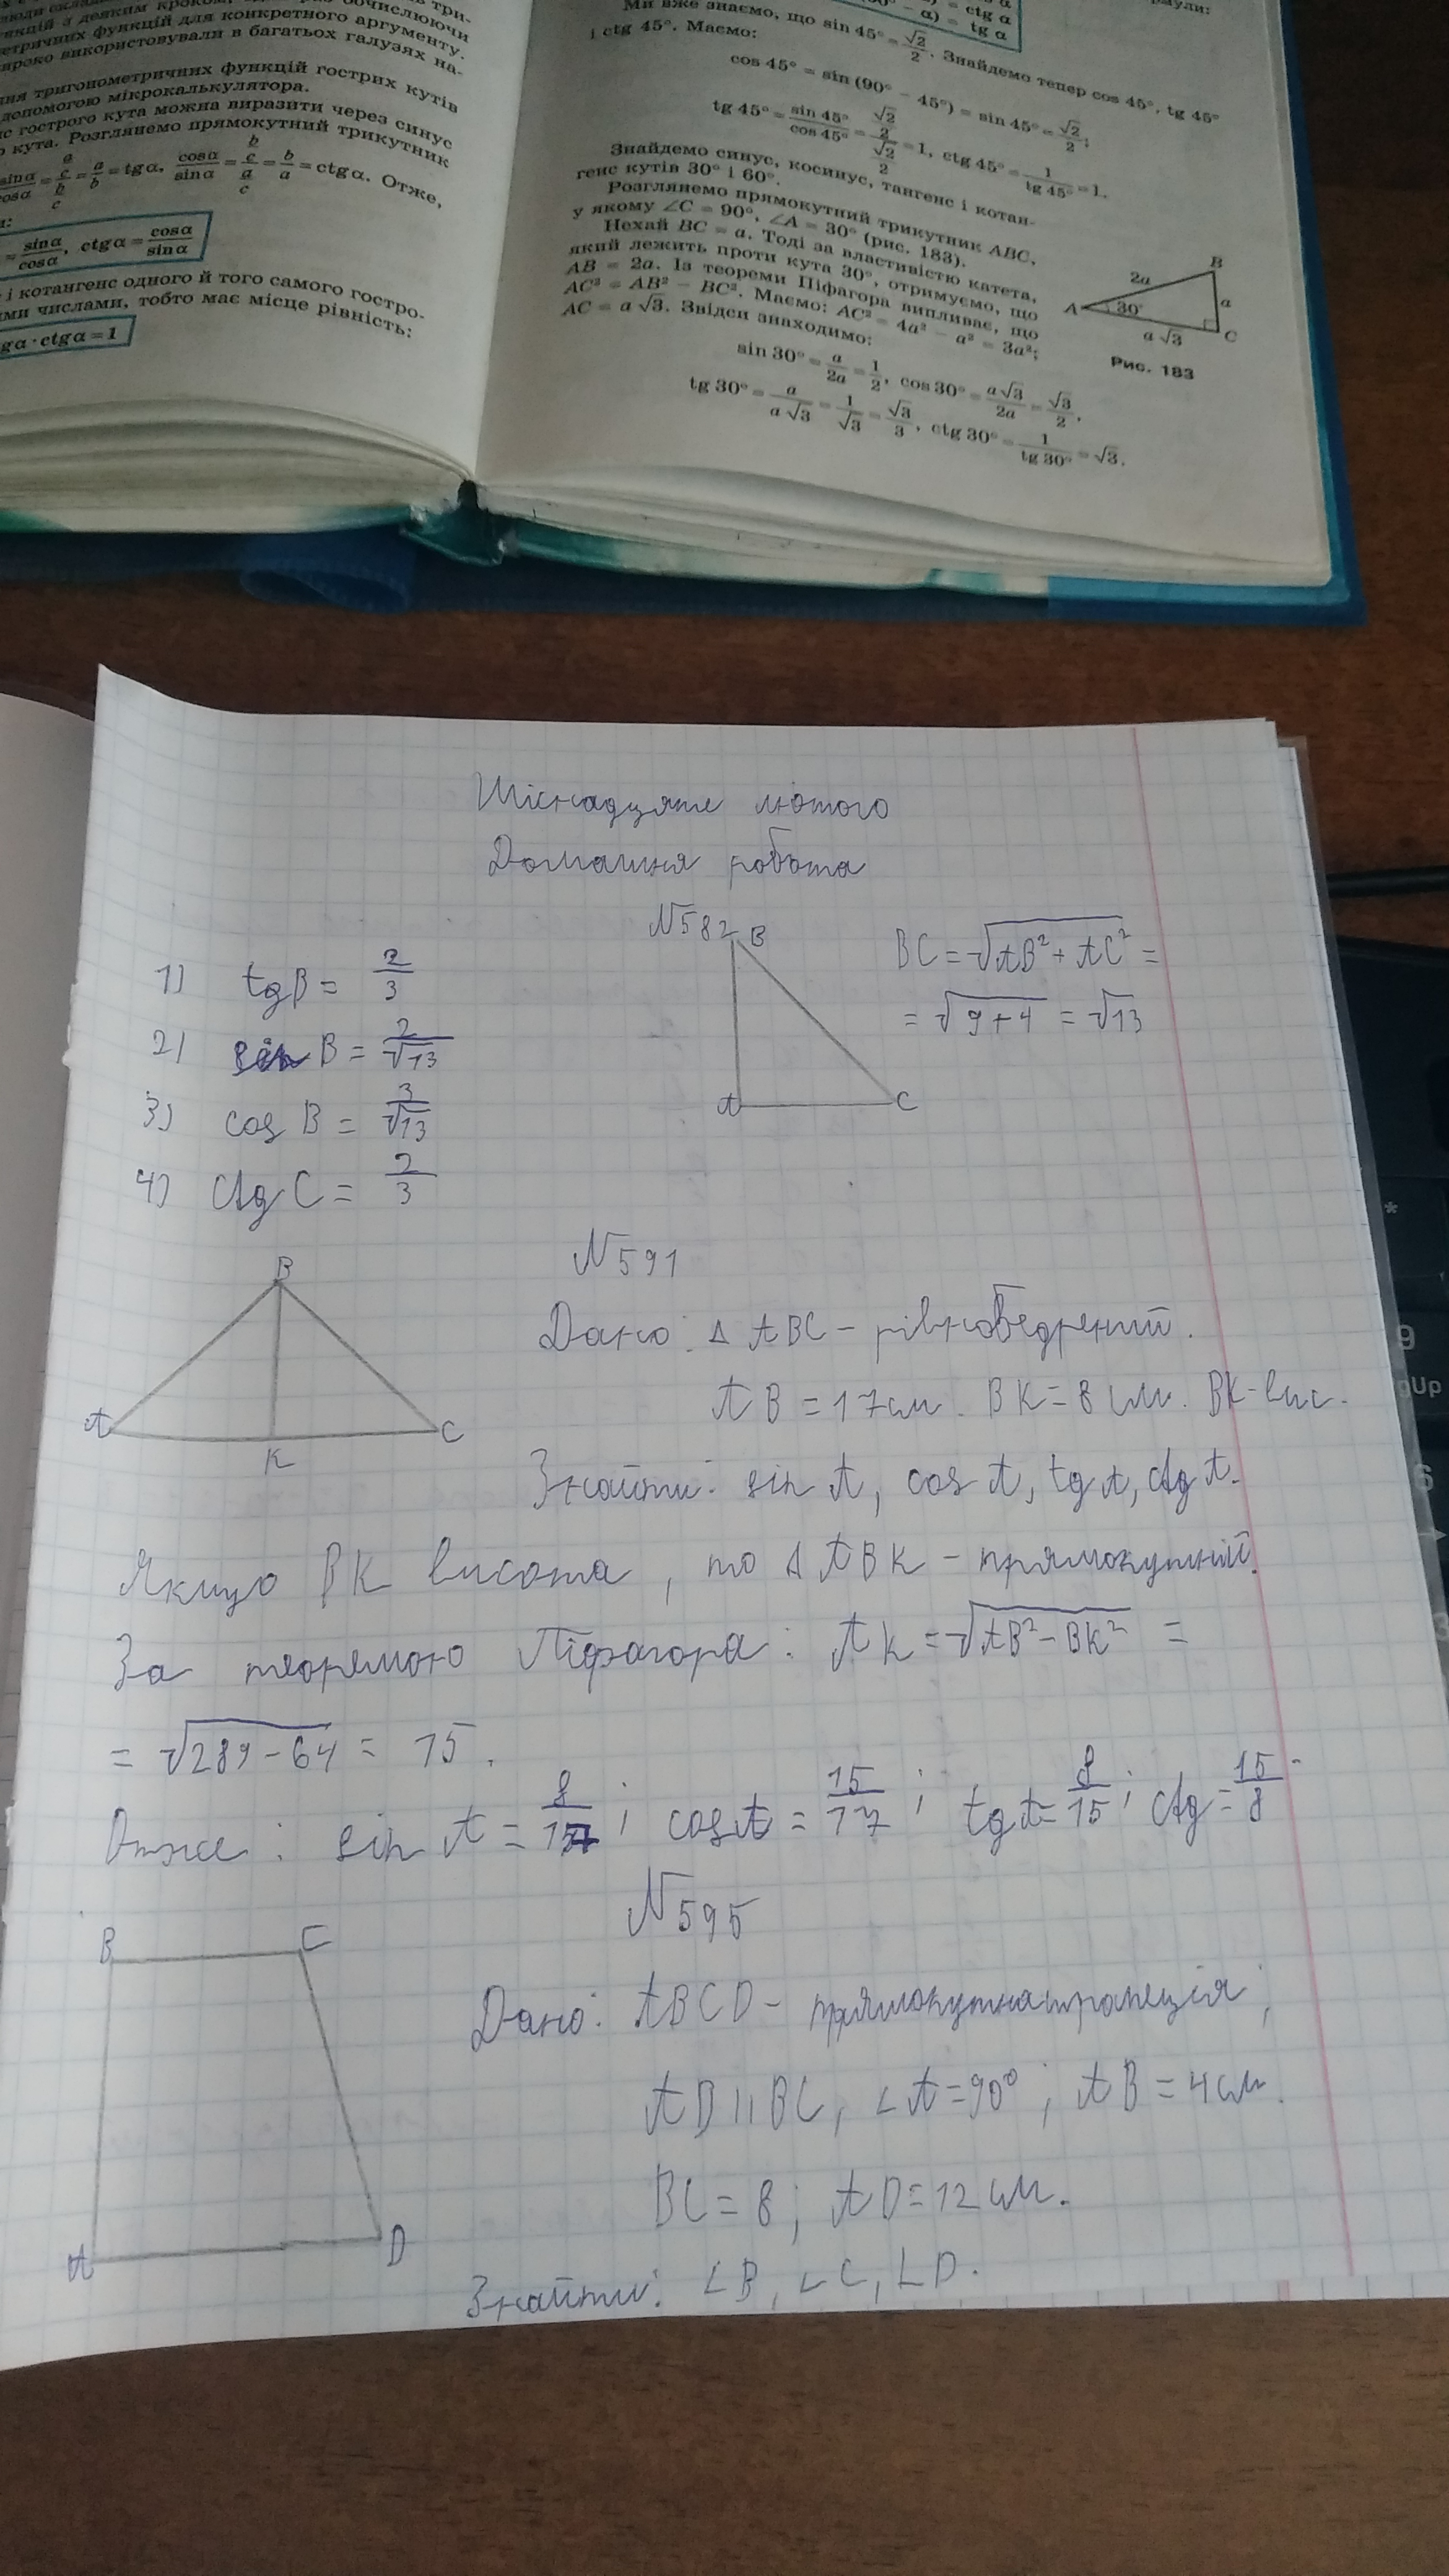 нкцій з деяким кроком,
обчислюючи
етричних функцій для конкретного аргументу.
ироко використовували в багатьох галузях на-
ня тригонометричних функцій гострих кутів
допомогою мікрокалькулятора.
с гострого кута можна виразити через синус
о кута. Розглянемо прямокутний трикутник
sinα/cosα = (a/c)/(b/c) = a/b = tgα, cosα/sinα = (b/c)/(a/c) = b/a = ctgα. Отже,
и:
= sinα/cosα, ctgα = cosα/sinα
і котангенс одного й того самого гостро-
ми числами, тобто має місце рівність:
gα·ctgα=1
= ctg α
− α) = tg α
мули:
Ми вже знаємо, що sin 45° = √2/2. Знайдемо тепер cos 45°, tg 45°
і ctg 45°. Маємо:
cos 45° = sin (90° − 45°) = sin 45° = √2/2;
tg 45° = sin 45°/cos 45° = (√2/2)/(√2/2) = 1, ctg 45° = 1/tg 45° = 1.
Знайдемо синус, косинус, тангенс і котан-
генс кутів 30° і 60°.
Розглянемо прямокутний трикутник ABC,
у якому ∠C = 90°, ∠A = 30° (рис. 183).
Нехай BC = a. Тоді за властивістю катета,
який лежить проти кута 30°, отримуємо, що
AB = 2a. Із теореми Піфагора випливає, що
AC² = AB² − BC². Маємо: AC² = 4a² − a² = 3a²;
AC = a √3. Звідси знаходимо:
sin 30° = a/2a = 1/2, cos 30° = a√3/2a = √3/2,
tg 30° = a/a√3 = 1/√3 = √3/3, ctg 30° = 1/tg 30° = √3.
B
2a
a
A
30°
a √3
C
Рис. 183
Шістнадцяте лютого
Домашня робота
N582
1) tgB = 2/3
2) sin B = 2/√13
3) cos B = 3/√13
4) ctg C = 2/3
B
A
C
BC = √AB² + AC² =
= √9+4 = √13
N591
B
A
K
C
Дано: Δ ABC – рівнобедрений.
AB = 17см. BK = 8 см. BK – вис.
Знайти: sin A, cos A, tg A, ctg A.
Якщо BK висота, то Δ ABK – прямокутний.
За теоремою Піфагора: AK = √AB² − BK² =
= √289−64 = 15.
Отже: sin A = 8/17; cos A = 15/17; tg A = 8/15; ctg = 15/8.
N595
B
C
A
D
Дано: ABCD – прямокутна трапеція;
AD || BC, ∠A = 90°; AB = 4см.
BC = 8; AD = 12 см.
Знайти: ∠B, ∠C, ∠D.
*
9
gUp
6